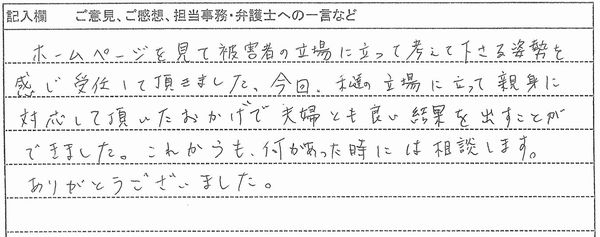 記入欄 ご意見、ご感想、担当事務・弁護士への一言など
ホームページを見て被害者の立場に立って考えて下さる姿勢を
感じ受任して頂きました。今回、私達の立場に立って親身に
対応して頂いたおかげで夫婦とも良い結果を出すことが
できました。これからも、何かあった時には相談します。
ありがとうございました。